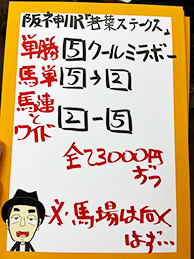 阪神11R「若葉ステークス」
単勝 5 クールミラボー
馬単 5→2
馬連とワイド 2-5
全て3000円ずつ
※馬場は向くはず…